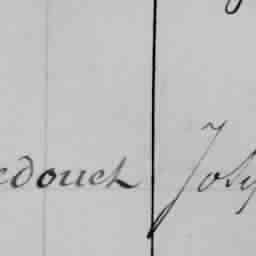 edouch Josep